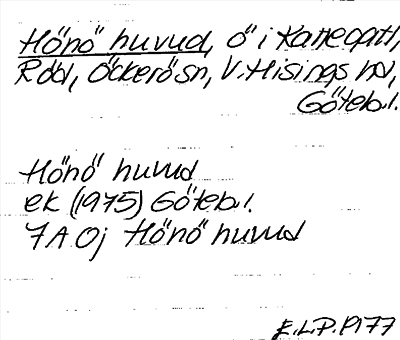 Hönö huvud, ö i Kattegatt,
Röd, Öckerö sn, V. Hisings hd,
Götebl.
Hönö huvud
ek (1975) Götebl.
7A Oj Hönö huvud
E.L.P. 1977